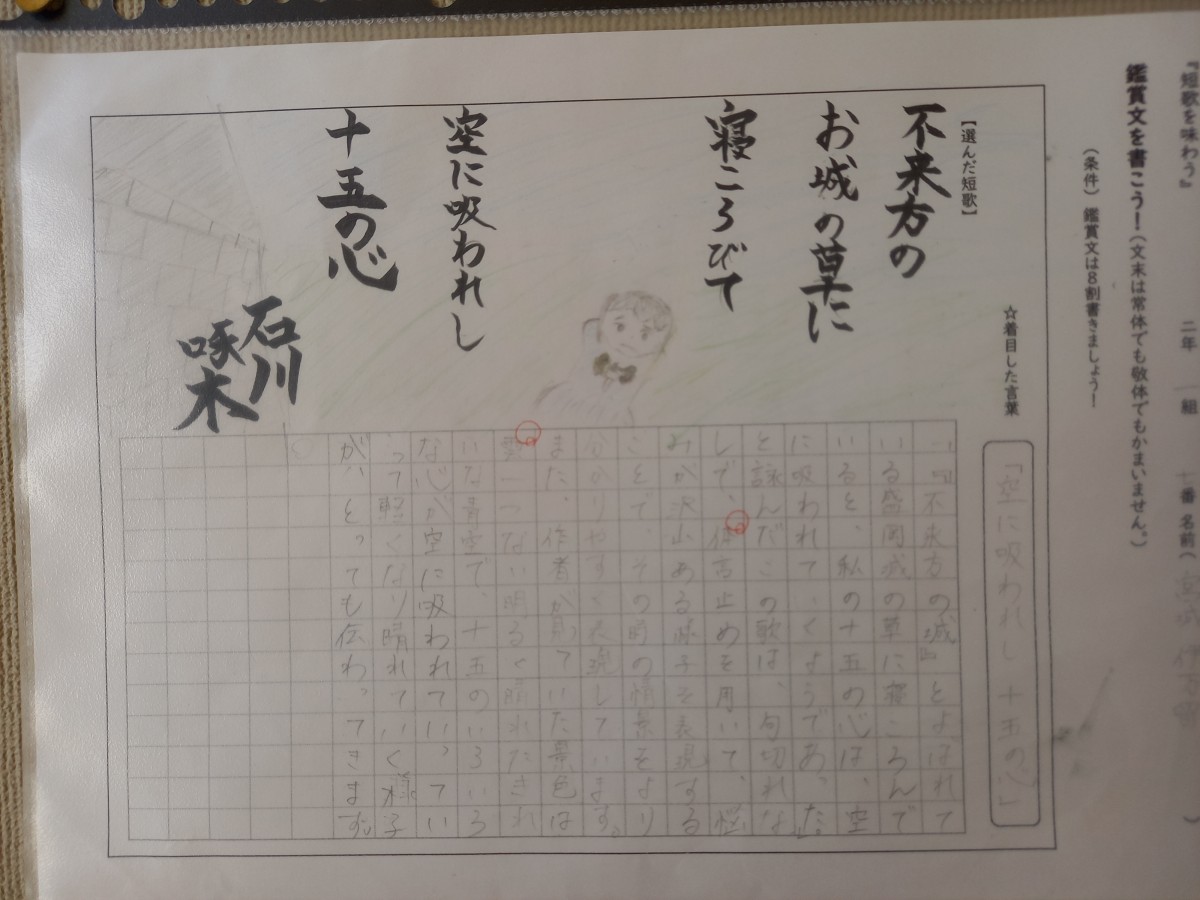 『短歌を味わう』
二年 組 番 名前( )
鑑賞文を書こう!(文末は常体でも敬体でもかまいません。)
(条件)鑑賞文は8割書きましょう!
☆着目した言葉
「空に吸われし 十五の心」
【選んだ短歌】
不来方の
お城の草に
寝ころびて
空に吸われし
十五の心
石川
啄木
「『不来方の城』とよばれて
いる盛岡城の草に寝ころんで
いると、私の十五の心は、空
に吸われていくようであった」
と詠んだこの歌は、句切れな
しで、体言止めを用いて、悩
みが沢山ある様子を表現する
ことで、その時の情景をより
分かりやすく表現しています。
また、作者が見ていた景色は
雲一つない明るく晴れたきれ
いな青空で、十五のいろいろ
な心が空に吸われていってい
って軽くなり晴れていく様子
が、とっても伝わってきます。